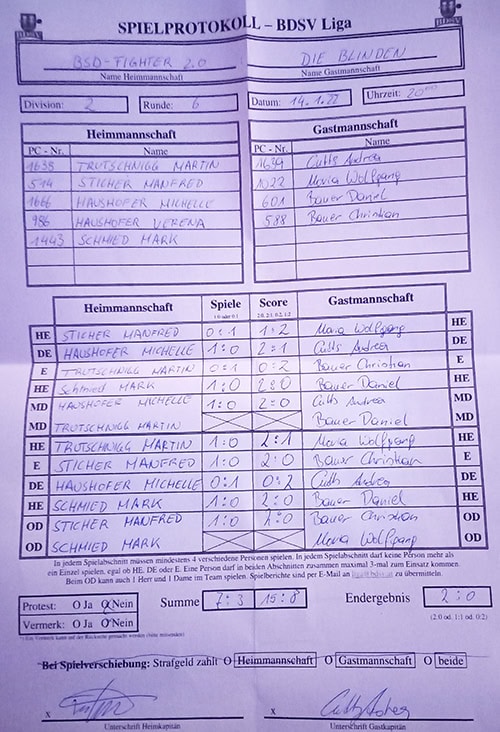 SPIELPROTOKOLL – BDSV Liga
BSD-FIGHTER 2.0 DIE BLINDEN
Name Heimmannschaft Name Gastmannschaft
Division: 2 Runde: 6 Datum: 14.1.22 Uhrzeit: 20°°
Heimmannschaft Gastmannschaft
PC - Nr. Name PC - Nr. Name
1638 TRUTSCHNIGG MARTIN 1639 Cutts Andrea
514 STICHER MANFRED 1022 Maria Wolfgang
1666 HAUSHOFER MICHELLE 601 Bauer Daniel
986 HAUSHOFER VERENA 588 Bauer Christian
1443 SCHMIED MARK
Heimmannschaft Spiele Score Gastmannschaft
1:0 oder 0:1 2:0, 2:1, 0:2, 1:2
HE STICHER MANFRED 0:1 1:2 Maria Wolfgang HE
DE HAUSHOFER MICHELLE 1:0 2:1 Cutts Andrea DE
E TRUTSCHNIGG MARTIN 0:1 0:2 Bauer Christian E
HE Schmied MARK 1:0 2:0 Bauer Daniel HE
MD HAUSHOFER MICHELLE 1:0 2:0 Cutts Andrea MD
MD TRUTSCHNIGG MARTIN Bauer Daniel MD
HE TRUTSCHNIGG MARTIN 1:0 2:1 Maria Wolfgang HE
E STICHER MANFRED 1:0 2:0 Bauer Christian E
DE HAUSHOFER MICHELLE 0:1 0:2 Cutts Andrea DE
HE SCHMIED MARK 1:0 2:0 Bauer Daniel HE
OD STICHER MANFRED 1:0 2:0 Bauer Christian OD
OD SCHMIED MARK Maria Wolfgang OD
In jedem Spielabschnitt müssen mindestens 4 verschiedene Personen spielen. In jedem Spielabschnitt darf keine Person mehr als
ein Einzel spielen, egal ob HE, DE oder E. Eine Person darf in beiden Abschnitten zusammen maximal 3-mal zum Einsatz kommen.
Beim OD kann auch 1 Herr und 1 Dame im Team spielen. Spielberichte sind per E-Mail an zu übermitteln.
Protest: O Ja O Nein Summe 7:3 15:8 Endergebnis 2:0
Vermerk: O Ja O Nein (2:0 od. 1:1 od. 0:2)
*) Ein Vermerk kann auf der Rückseite gemacht werden (bitte ankreuzen)
Bei Spielverschiebung: Strafgeld zahlt O Heimmannschaft O Gastmannschaft O beide
x x
Unterschrift Heimkapitän Unterschrift Gastkapitän